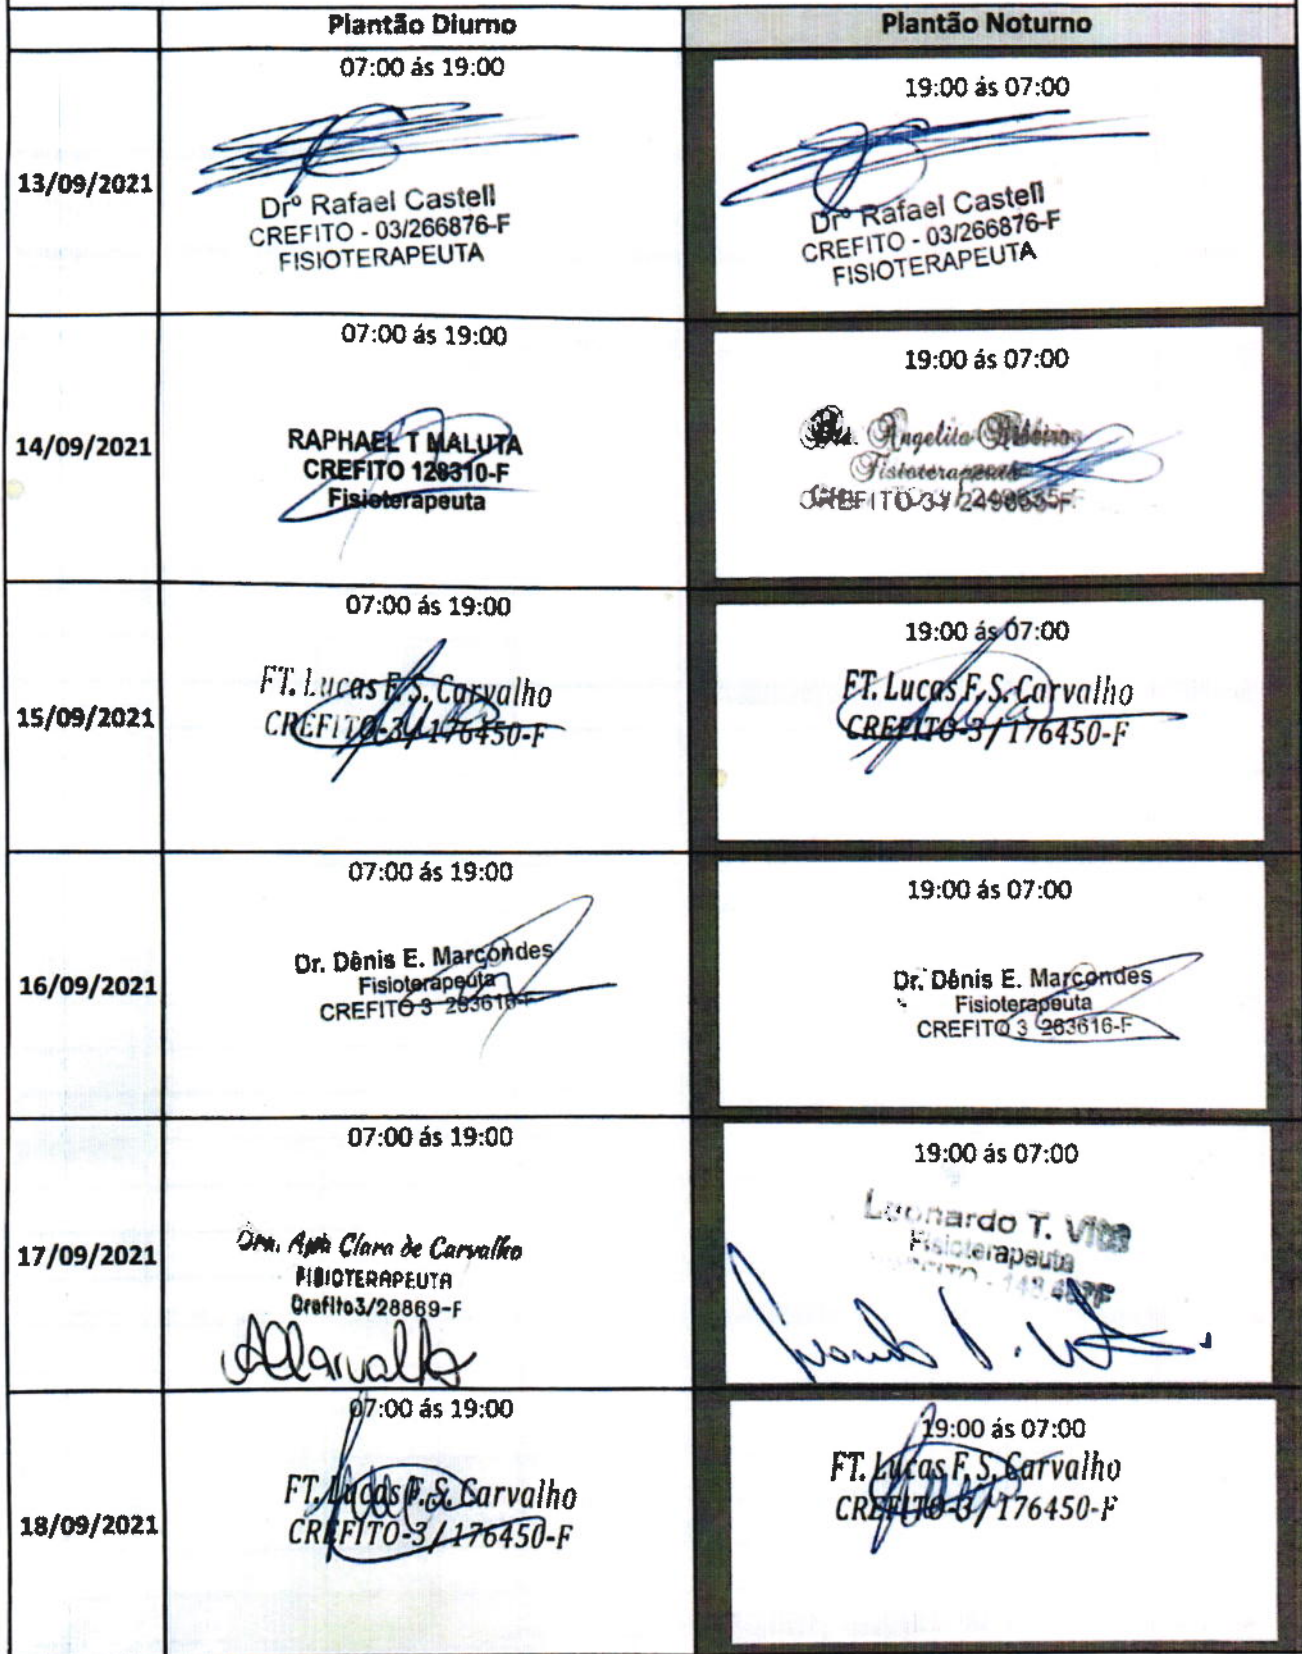 Plantão Diurno
Plantão Noturno
13/09/2021
07:00 ás 19:00
Drº Rafael Castell
CREFITO - 03/266876-F
FISIOTERAPEUTA
19:00 ás 07:00
Drº Rafael Castell
CREFITO - 03/266876-F
FISIOTERAPEUTA
14/09/2021
07:00 ás 19:00
RAPHAEL T MALUTA
CREFITO 128310-F
Fisioterapeuta
19:00 ás 07:00
Angelita
Fisioterapeuta
CREFITO
15/09/2021
07:00 ás 19:00
FT. Lucas F. S. Carvalho
CREFITO-3 / 176450-F
19:00 ás 07:00
FT. Lucas F. S. Carvalho
CREFITO-3 / 176450-F
16/09/2021
07:00 ás 19:00
Dr. Dênis E. Marcondes
Fisioterapeuta
CREFITO 3 263616-F
19:00 ás 07:00
Dr. Dênis E. Marcondes
Fisioterapeuta
CREFITO 3 263616-F
17/09/2021
07:00 ás 19:00
Dra. Ana Clara de Carvalho
FISIOTERAPEUTA
Crefito3/28869-F
ACCarvalho
19:00 ás 07:00
Leonardo T. Vita
Fisioterapeuta
18/09/2021
07:00 ás 19:00
FT. Lucas F. S. Carvalho
CREFITO-3 / 176450-F
19:00 ás 07:00
FT. Lucas F. S. Carvalho
CREFITO-3 / 176450-F